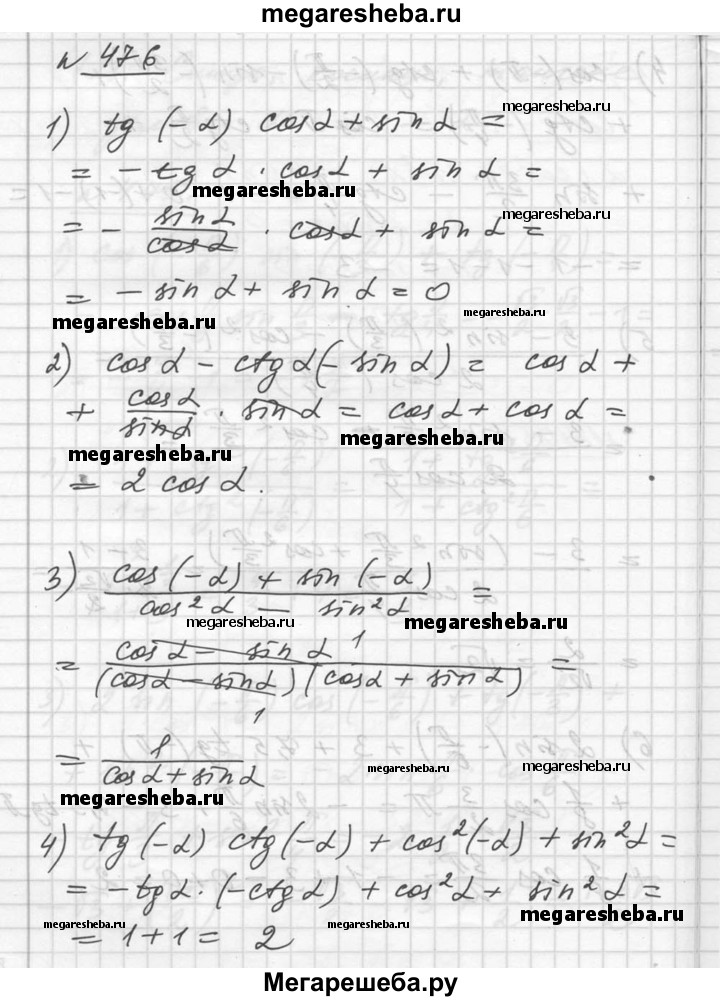 megaresheba.ru
N 476
1) tg (-α) cos α + sin α =
megaresheba.ru
= - tg α · cos α + sin α =
megaresheba.ru
megaresheba.ru
= - sin α / cos α · cos α + sin α =
= - sin α + sin α = 0
megaresheba.ru
megaresheba.ru
2) cos α - ctg α (- sin α) = cos α +
+ cos α / sin α · sin α = cos α + cos α =
megaresheba.ru
megaresheba.ru
= 2 cos α.
3) cos (-α) + sin (-α) / cos² α - sin² α =
megaresheba.ru
megaresheba.ru
= cos α - sin α 1 / (cos α - sin α) (cos α + sin α) 1 =
= 1 / cos α + sin α
megaresheba.ru
megaresheba.ru
megaresheba.ru
4) tg (-α) ctg (-α) + cos² (-α) + sin² α =
= - tg α · (- ctg α) + cos² α + sin² α =
megaresheba.ru
megaresheba.ru
megaresheba.ru
= 1 + 1 = 2
Мегарешеба.ру